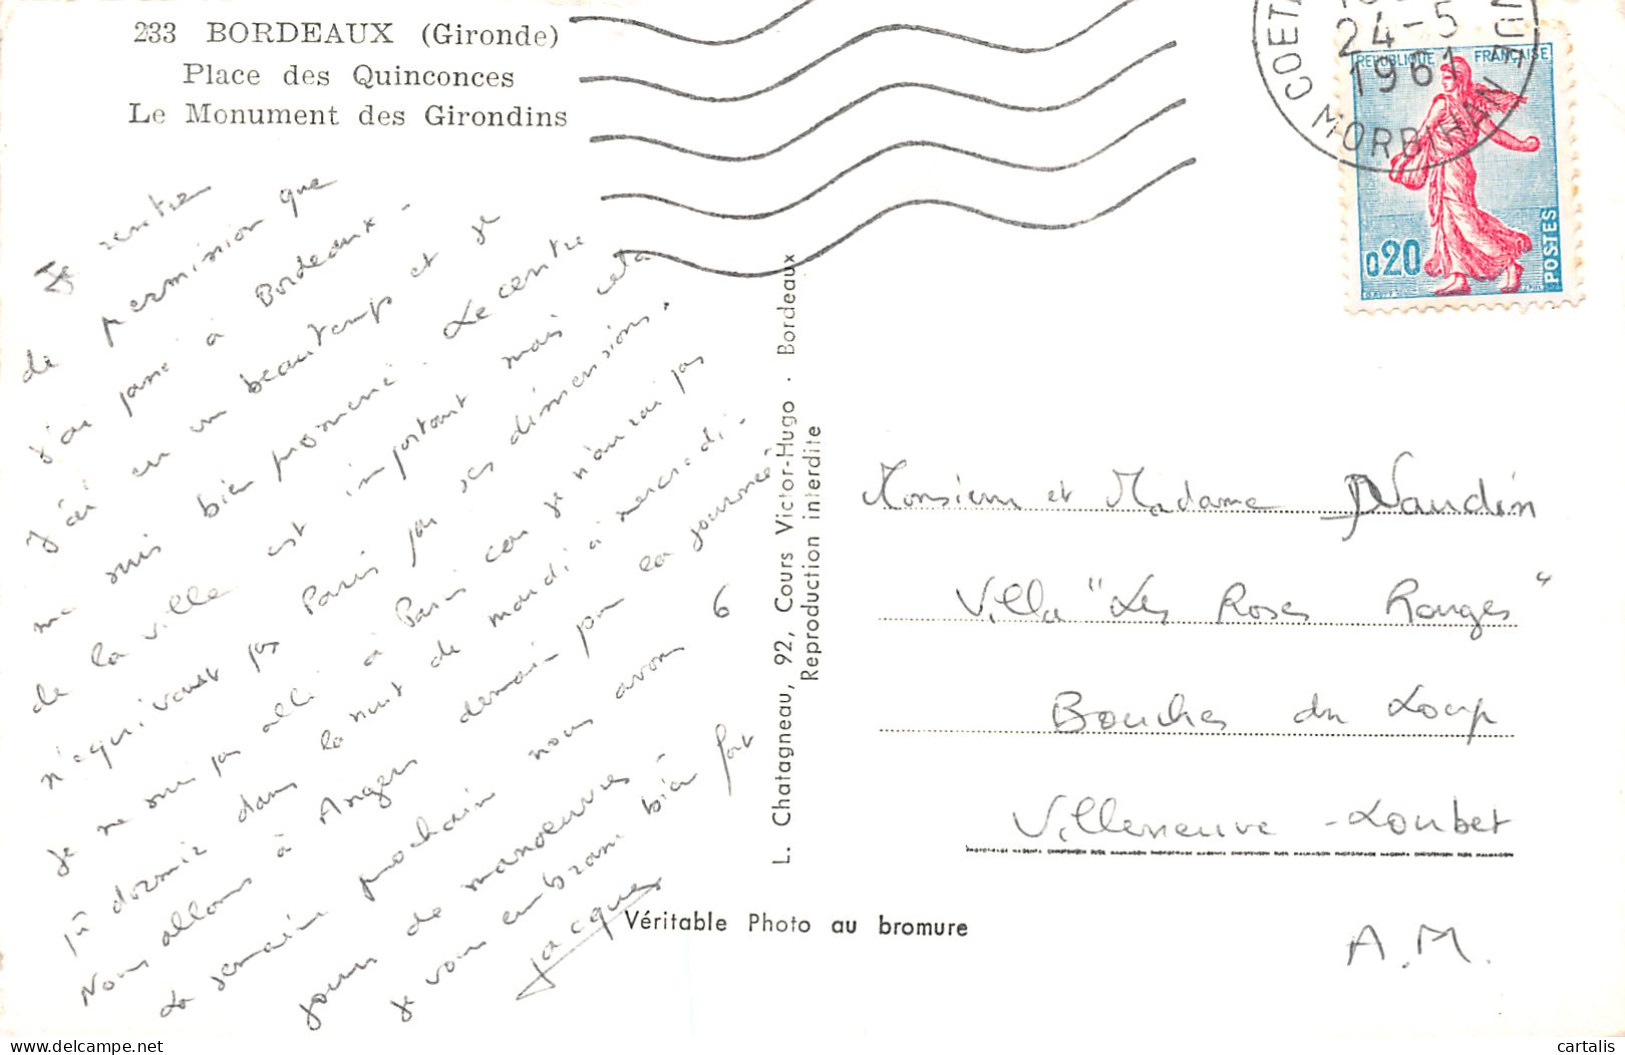 233 BORDEAUX (Gironde)
Place des Quinconces
Le Monument des Girondins
COETQUIDAN
24-5
1961
MORBIHAN
REPUBLIQUE FRANÇAISE
0,20
POSTES
Je rentre
de permission que
j'ai passé à Bordeaux -
J'ai eu un beau temps et je
me suis bien promené. Le centre
de la ville est important mais cela
n'équivaut pas Paris par ses dimensions.
Je ne suis pas allé à Paris car je n'aurai pas
pû dormir dans la nuit de mardi à mercredi -
Nous allons à Angers demain pour la journée
La semaine prochaine nous avons 6
jours de manoeuvres -
Je vous embrasse bien fort
Jacques
L. Chatagneau, 92, Cours Victor-Hugo . Bordeaux
Reproduction interdite
Véritable Photo au bromure
Monsieur et Madame Naudin
Villa "Les Roses Rouges"
Bouches du Loup
Villeneuve - Loubet
A.M.
delcampe.net
cartalis